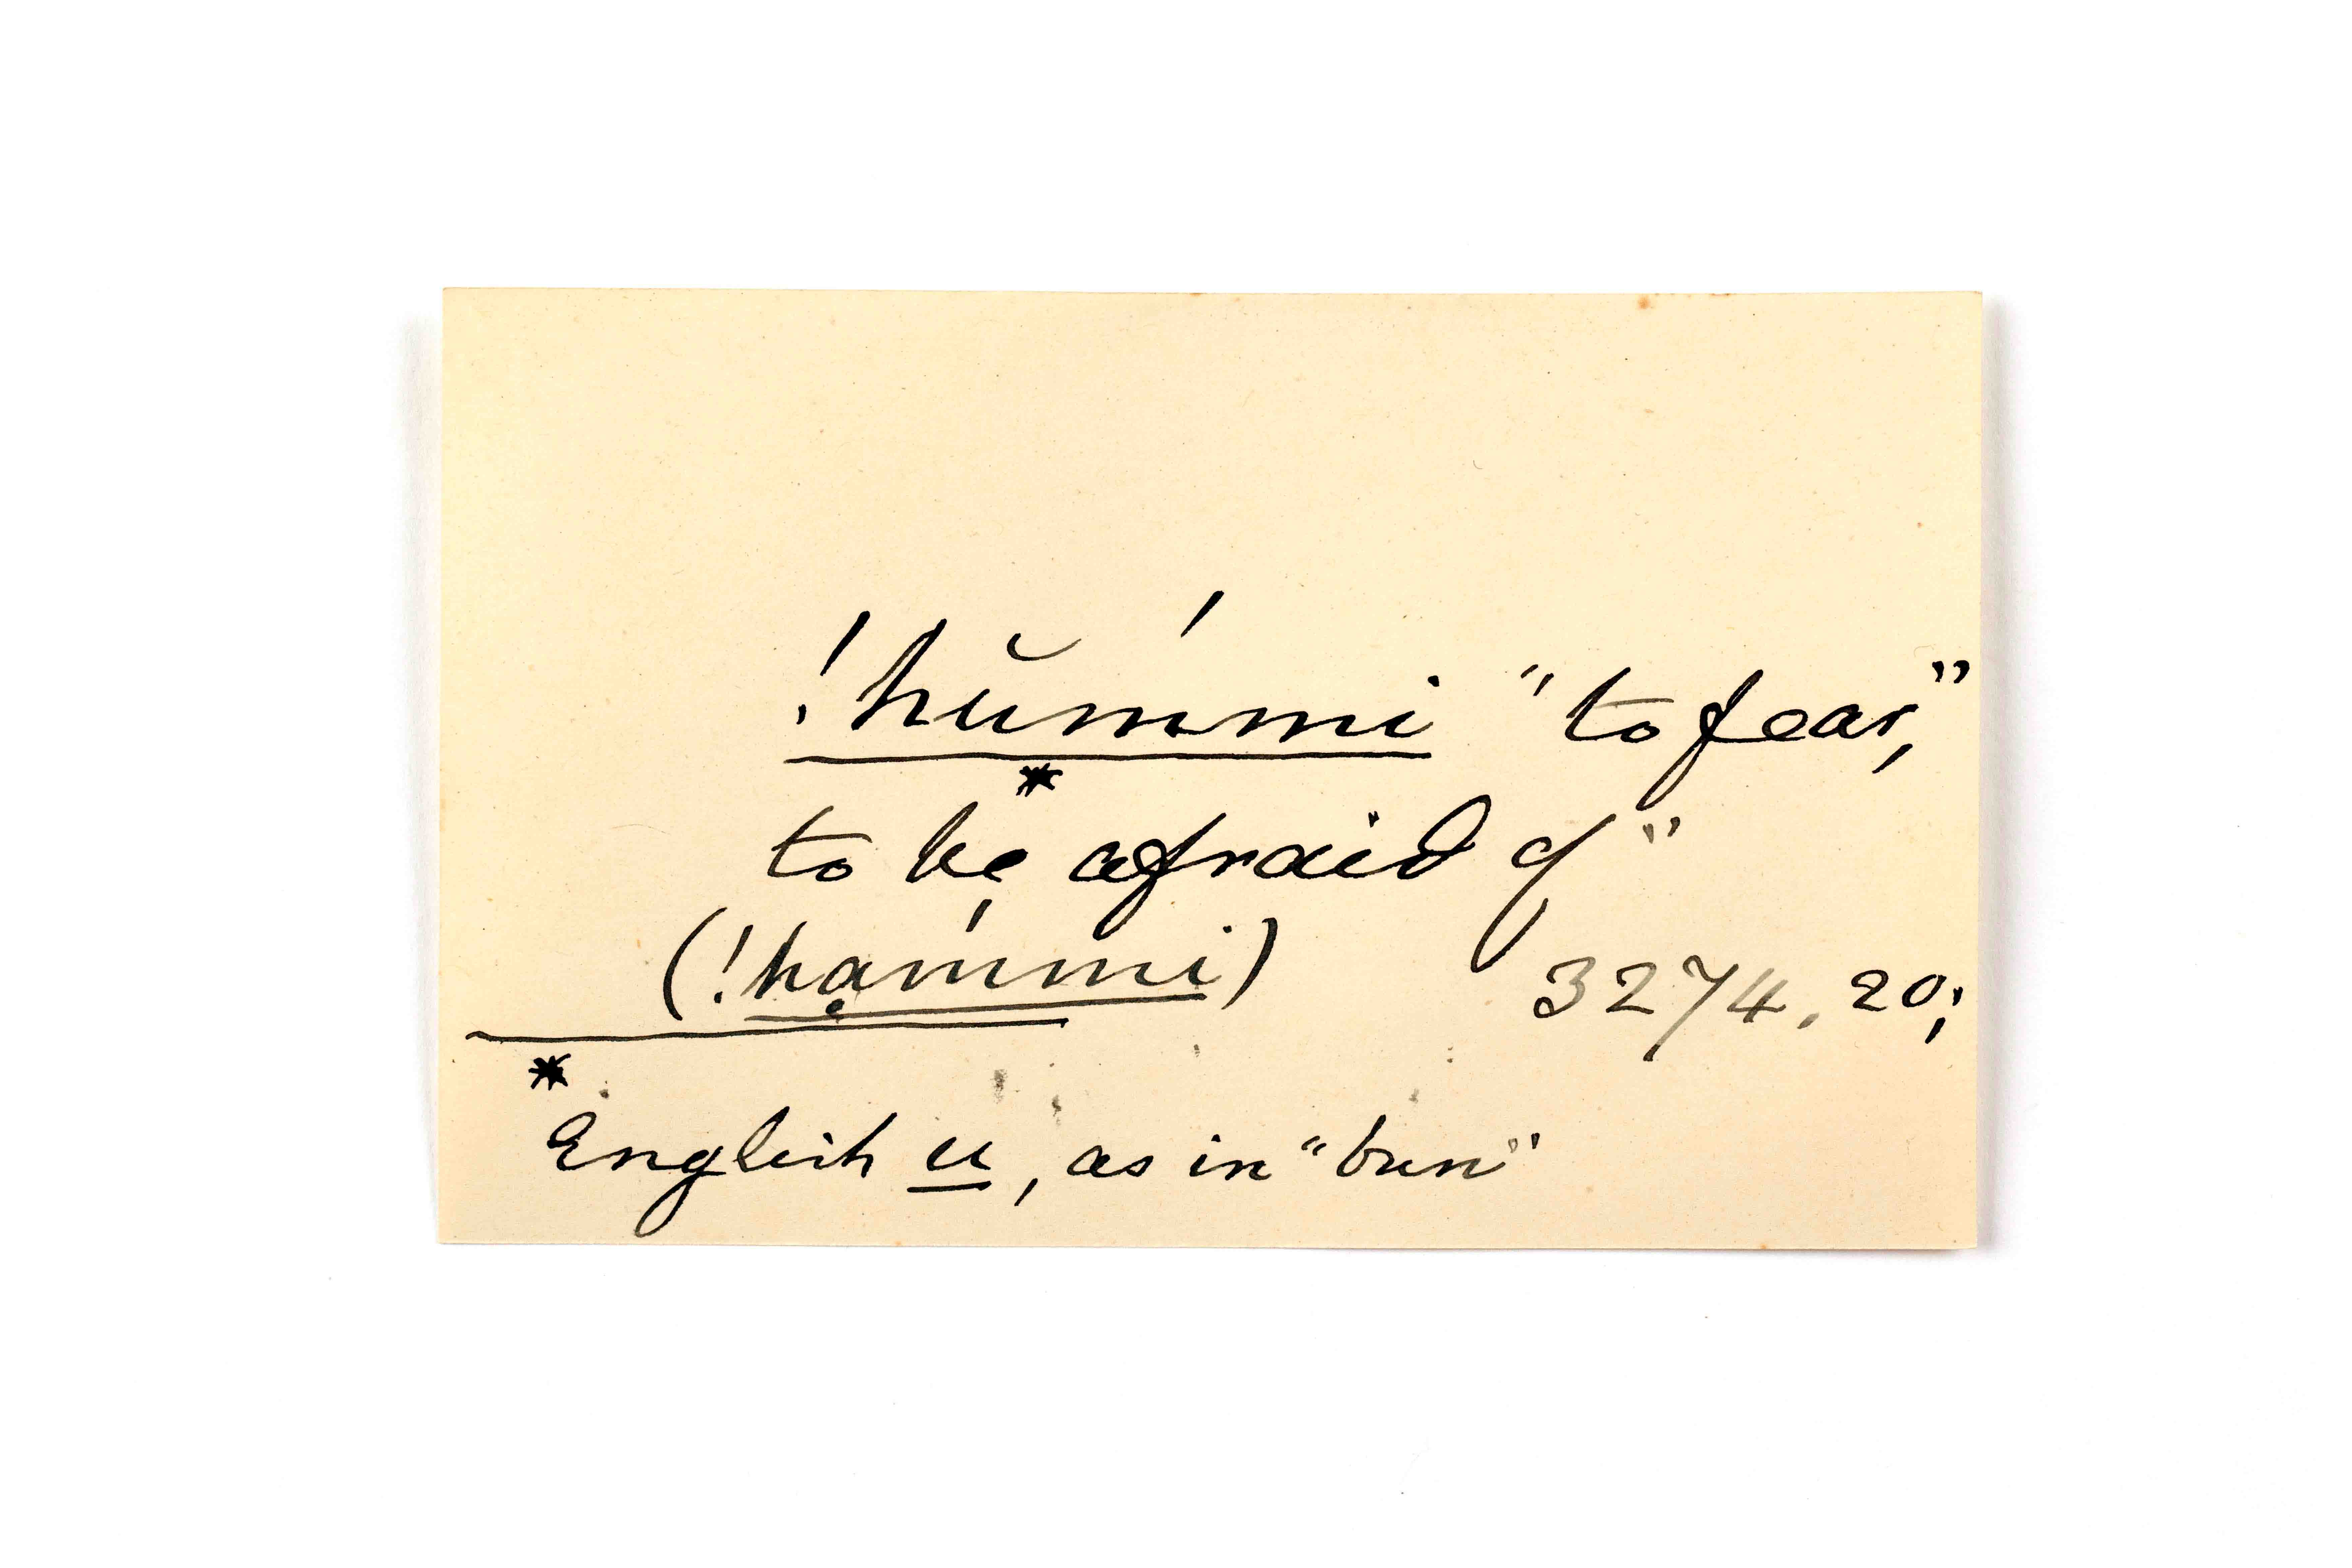 !hŭm´mi "to fear,"
*
to be afraid of"
(!hạm´mi) 3274, 20;
*
English u, as in "bun"